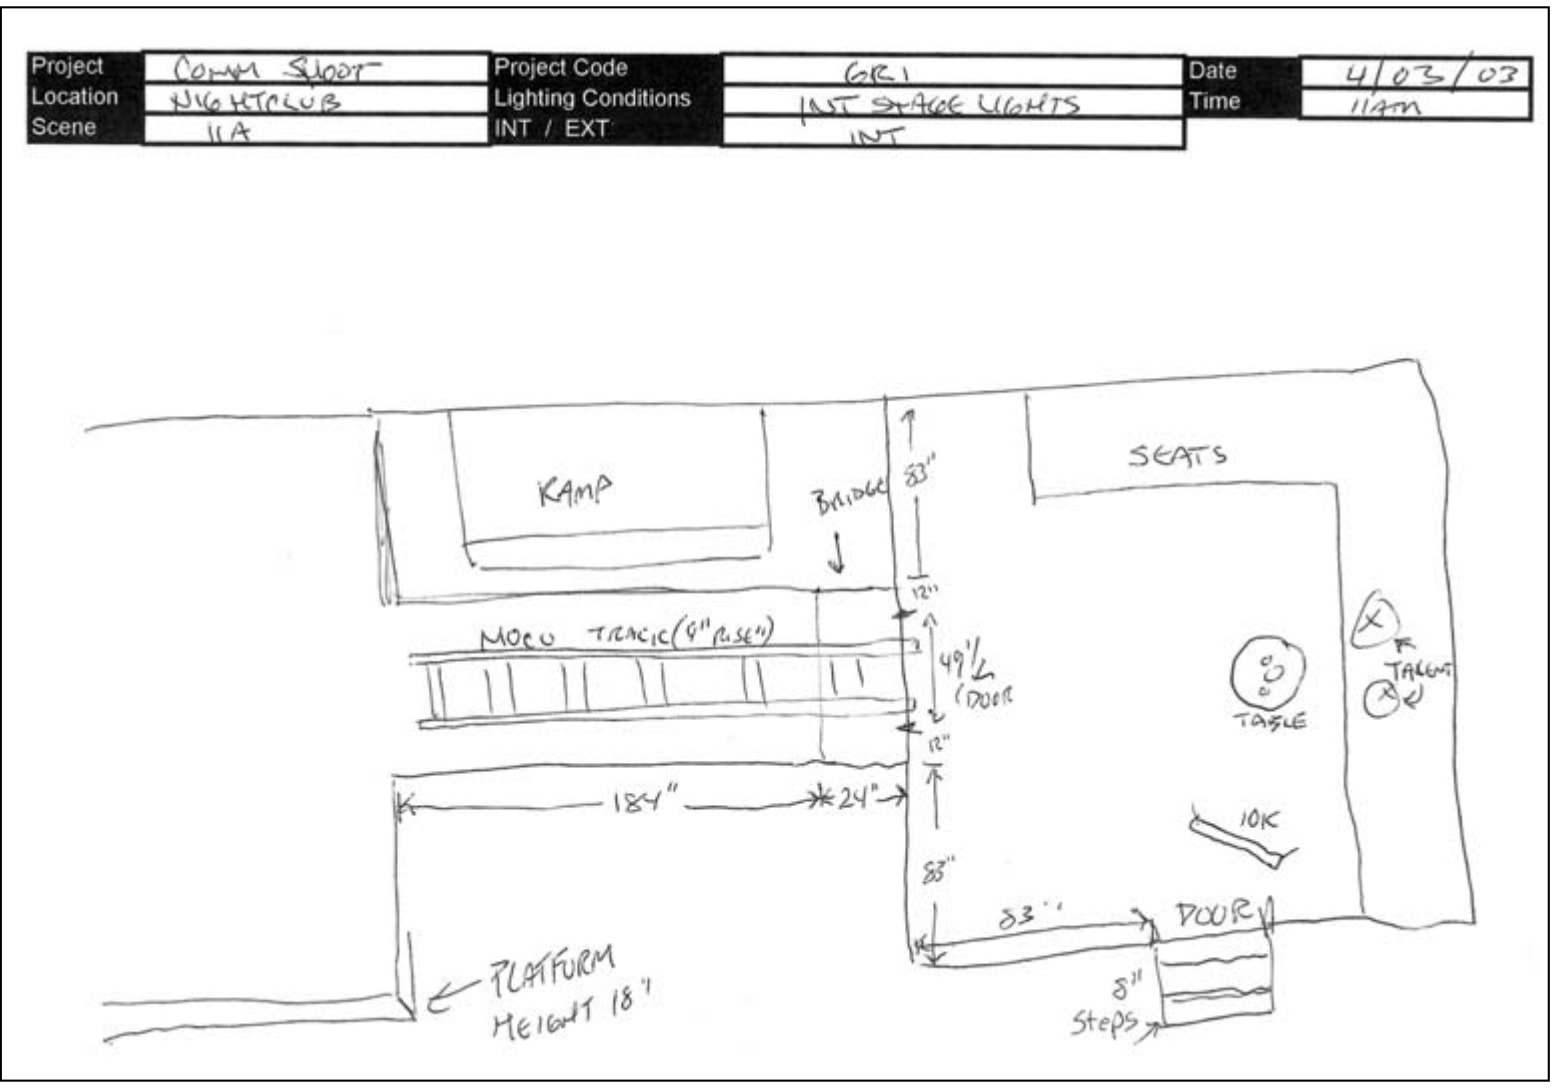 Project COMM SHOOT Project Code GR1 Date 4/03/03
Location NIGHTCLUB Lighting Conditions INT STAGE LIGHTS Time 11AM
Scene 11A INT / EXT INT
SEATS
83"
RAMP
BRIDGE
12"
MOCO TRACK (4" RISE")
49 1/2
(DOOR
TALENT
TABLE
12"
184"
24"
10K
83"
83"
DOOR
PLATFORM
HEIGHT 18"
8"
Steps